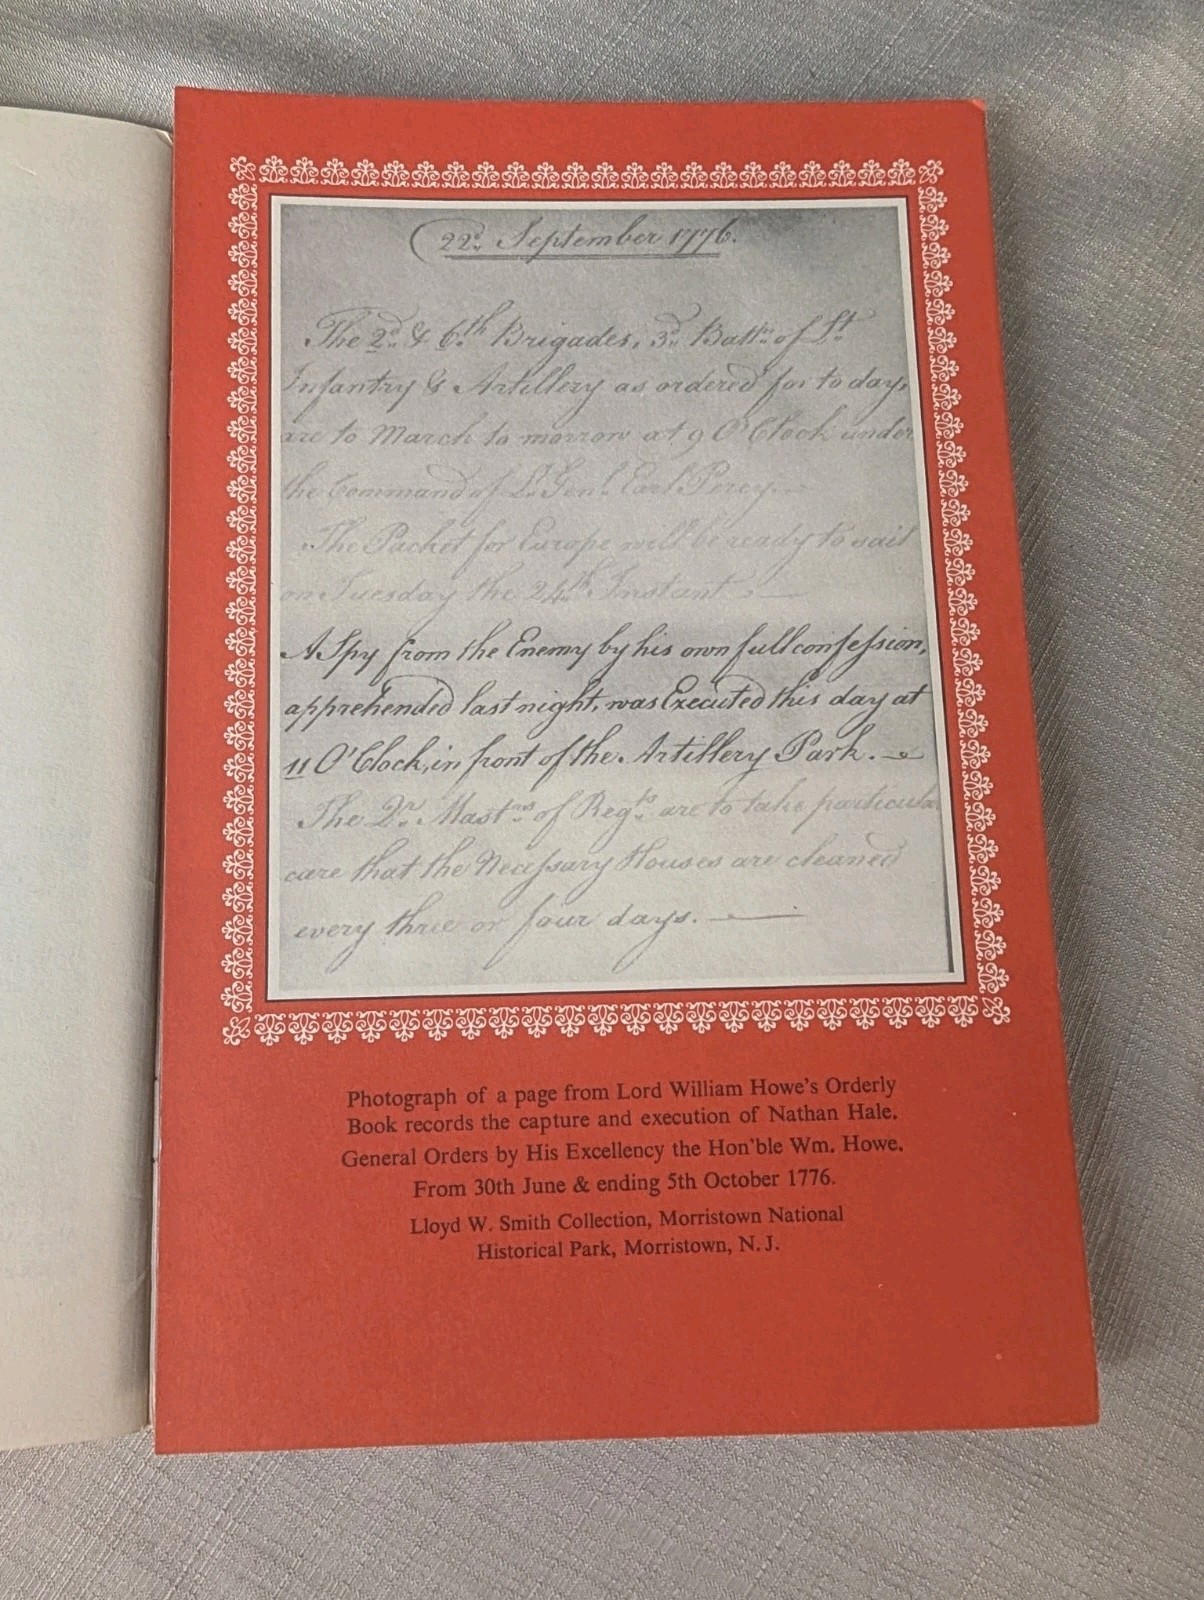 22d. September 1776.
The 2d. & 6.th Brigades, 3d. Battn. of Lt.
Infantry & Artillery as ordered for to day,
are to March to morrow at 9 O'Clock under
the Command of Lt. Genl. Earl Percy.—
The Packet for Europe will be ready to sail
on Tuesday the 24th. Instant.—
A Spy from the Enemy by his own full confession,
apprehended last night, was Executed this day at
11 O'Clock, in front of the Artillery Park.—
The Qr. Mastrs. of Regts. are to take particular
care that the Necessary Houses are cleaned
every three or four days.—
Photograph of a page from Lord William Howe's Orderly
Book records the capture and execution of Nathan Hale.
General Orders by His Excellency the Hon'ble Wm. Howe.
From 30th June & ending 5th October 1776.
Lloyd W. Smith Collection, Morristown National
Historical Park, Morristown, N. J.